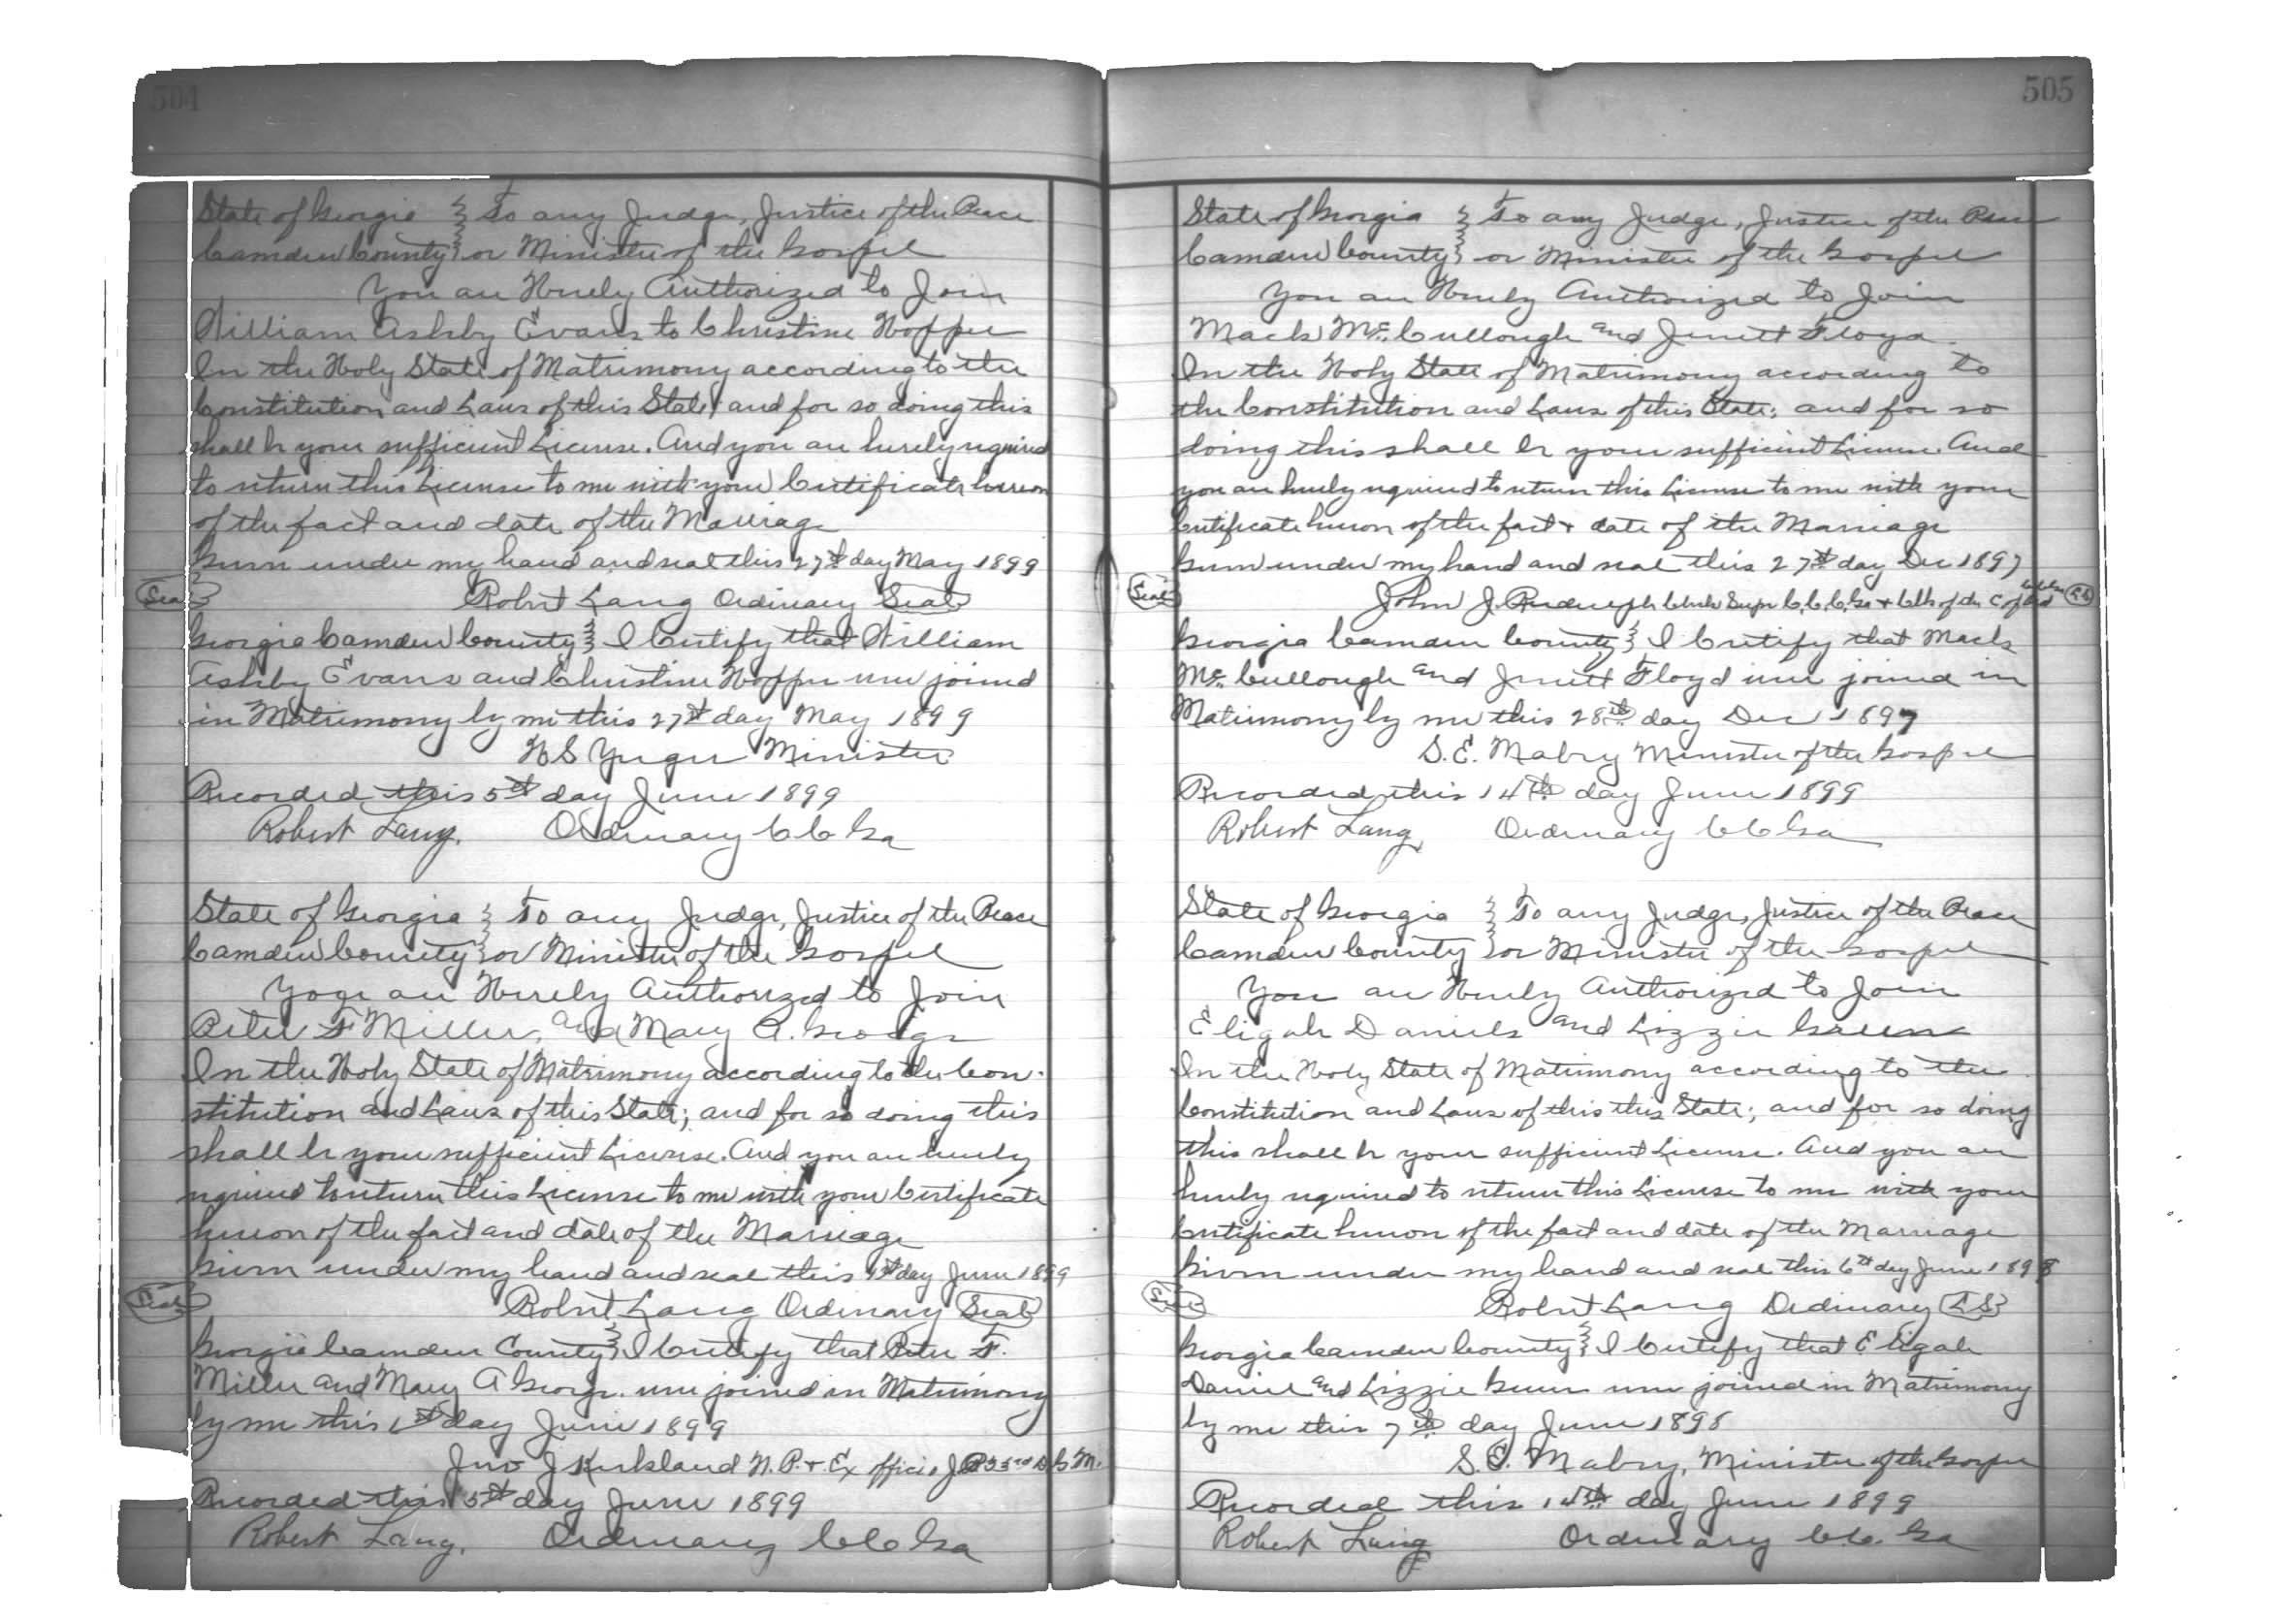 504
State of Georgia } To any Judge, Justice of the Peace
Camden County } or Minister of the Gospel
You are Hereby Authorized to Join
William Ashby Evans to Christine Hopper
In the Holy State of Matrimony according to the
Constitution and Laws of this State, and for so doing this
shall be your sufficient License. And you are hereby required
to return this License to me with your Certificate hereon
of the fact and date of the Marriage
Given under my hand and seal this 27th day May 1899
Seal Robert Lang Ordinary Seal
Georgia Camden County } I Certify that William
Ashby Evans and Christine Hopper were joined
in Matrimony by me this 27th day May 1899
Minister
Recorded this 5th day June 1899
Robert Lang. Ordinary CC Ga
State of Georgia } To any Judge, Justice of the Peace
Camden County } or Minister of the Gospel
You are Hereby Authorized to Join
Peter F Miller, and Mary A. George
In the Holy State of Matrimony according to the Con-
stitution and Laws of this State; and for so doing this
shall be your sufficient License. And you are hereby
required to return this License to me with your Certificate
hereon of the fact and date of the Marriage
Given under my hand and seal this 1st day June 1899
Seal Robert Lang Ordinary Seal
Georgia Camden County } I Certify that Peter F.
Miller and Mary A George were joined in Matrimony
by me this 1st day June 1899
Jno J Kirkland N.P. + Ex officio J P 33rd D G M.
Recorded this 5th day June 1899
Robert Lang. Ordinary CC Ga
505
State of Georgia } To any Judge, Justice of the Peace
Camden County } or Minister of the Gospel
You are Hereby Authorized to Join
Mack McCullough and Jenett Floyd
In the Holy State of Matrimony according to
the Constitution and Laws of this State; and for so
doing this shall be your sufficient License. And
you are hereby required to return this License to me with your
Certificate hereon of the fact + date of the Marriage
Given under my hand and seal this 27th day Dec 1897
Seal John J. Rudulph Clerk Supr C, C, C, Ga + Clk of the C of Ord
Georgia Camden County } I Certify that Mack
McCullough and Jenett Floyd were joined in
Matrimony by me this 28th day Dec 1897
S. E. Mabry Minister of the Gospel
Recorded this 14th day June 1899
Robert Lang Ordinary CC Ga
State of Georgia } To any Judge, Justice of the Peace
Camden County } or Minister of the Gospel
You are Hereby Authorized to Join
Eligah Daniels and Lizzie Green
In the Holy State of Matrimony according to the
Constitution and Laws of this this State; and for so doing
this shall be your sufficient License. And you are
hereby required to return this License to me with your
Certificate hereon of the fact and date of the Marriage
Given under my hand and seal this 6th day June 1898
Seal Robert Lang Ordinary L.S.
Georgia Camden County } I Certify that Eligah
Daniel and Lizzie Green were joined in Matrimony
by me this 7th day June 1898
S. E. Mabry, Minister of the Gospel
Recorded this 14th day June 1899
Robert Lang Ordinary CC. Ga